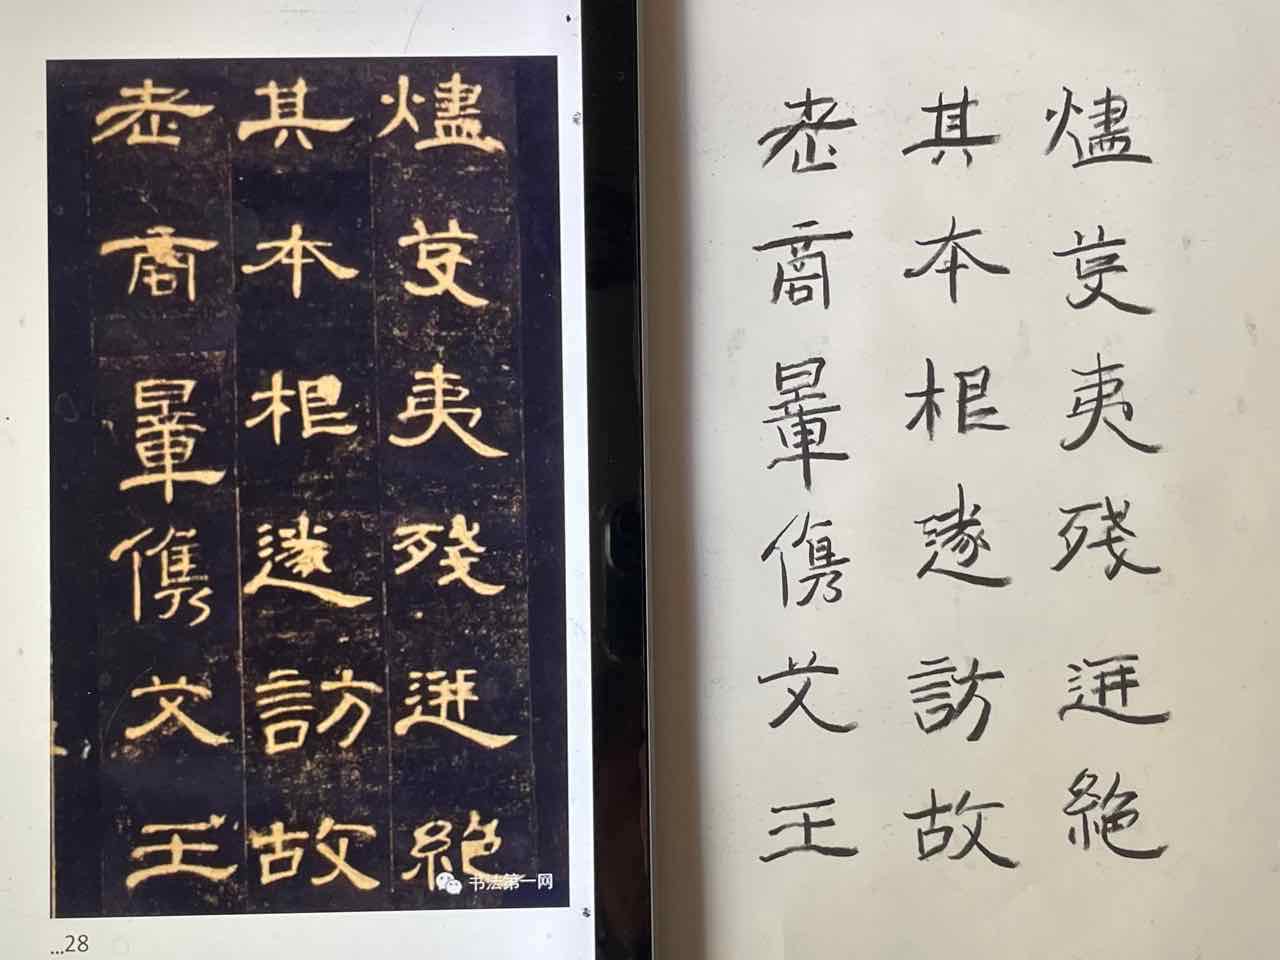 燼芟夷殘迸絕
其本根遂訪故
老商量儁艾王
书法第一网
...28
燼芟夷殘迸絕
其本根遂訪故
老商量儁艾王